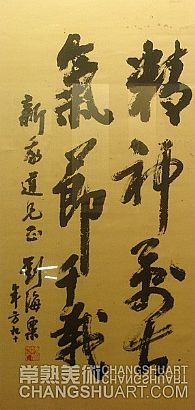 精神萬古
氣節千載
新我道兄正
劉海粟
年方九十
常熟美術
CHANGSHUART.COM